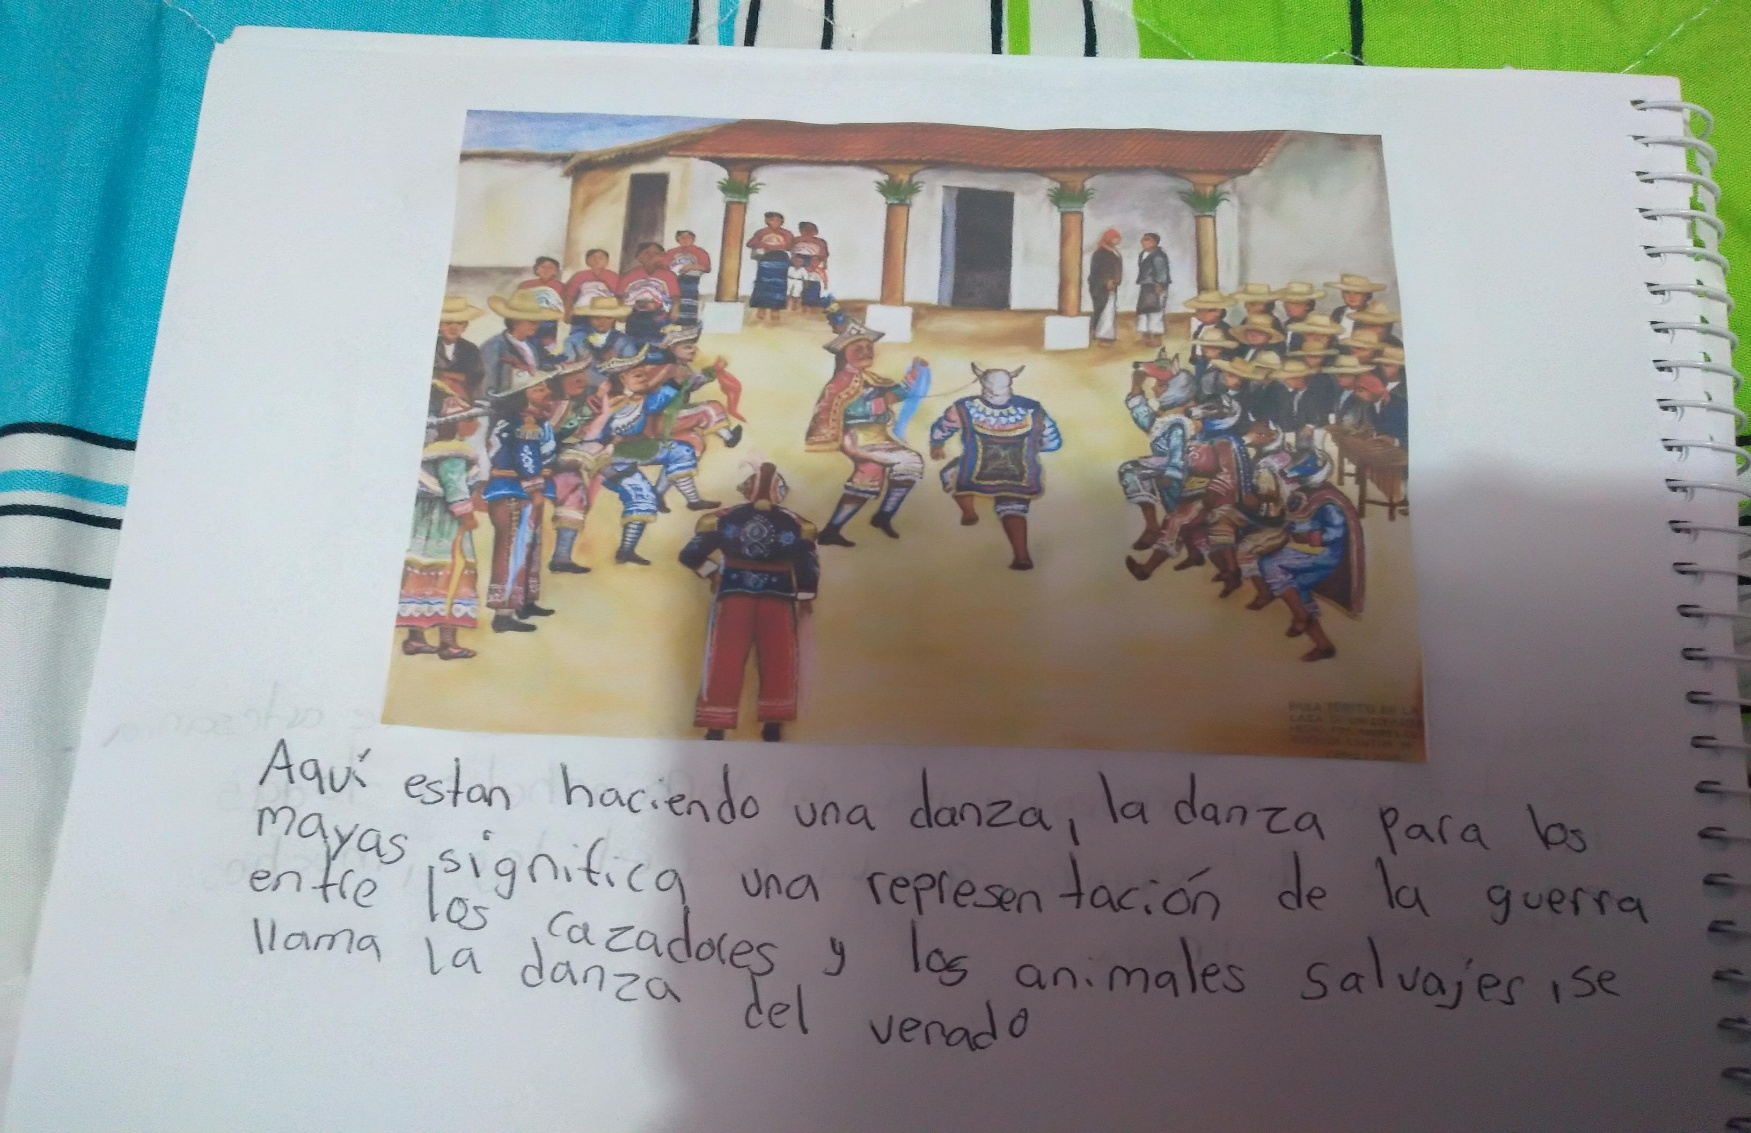 Aquí estan haciendo una danza, la danza para los
mayas significa una representación de la guerra
entre los cazadores y los animales salvajes, se
llama la danza del venado